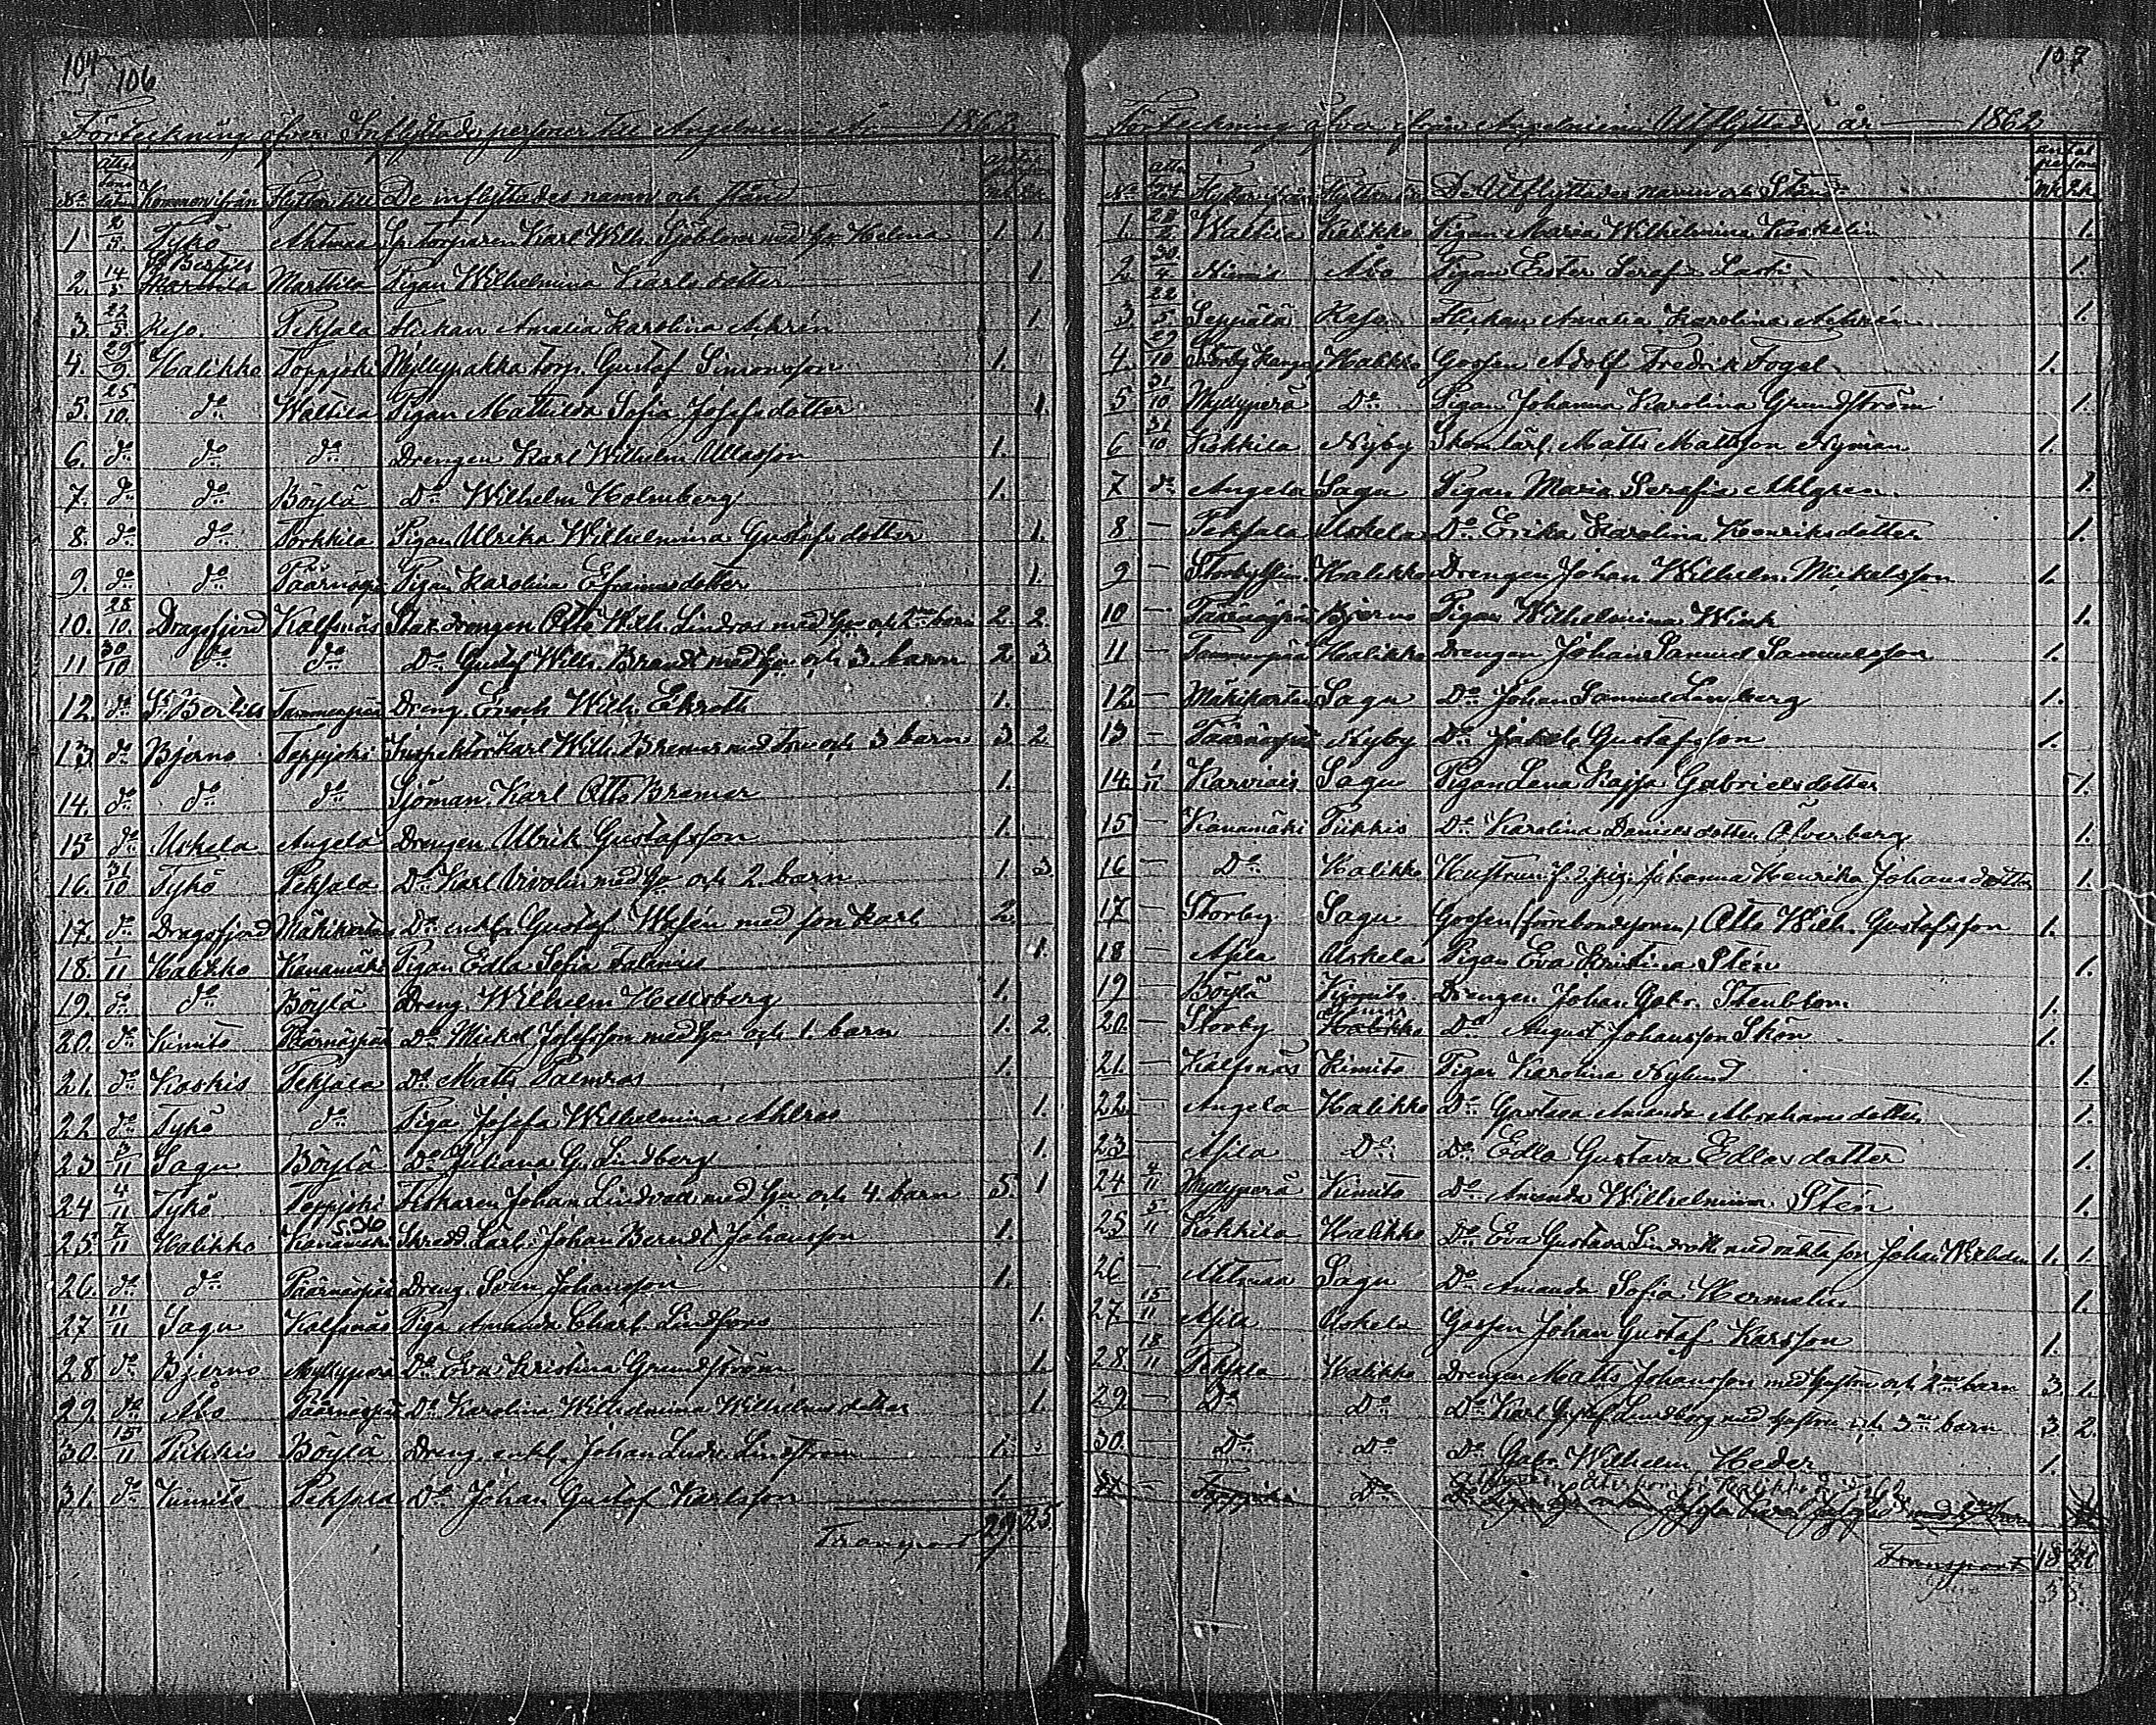 106
Förteckning öfver Inflyttade personer till Angelniemi År 1862
No Kommen ifrån Flyttat till De inflyttades namn och stånd
1. 2/5 Tykö Ahtmaa Karl Wilh. Sjöblom med hu Helena 1. 1.
2. 14/5 St Bertils Marttila Pigan Wilhelmina Karlsdotter 1.
3. 22/5 Pehjala Flickan Amalia Karolina 1.
4. 29/9 Halikko Toppjoki Myllypakka torp. Gustaf Simonsson 1.
5. 25/10 do Waltila Pigan Mathilda Sofia Josefsdotter 1.
6. do do do Drengen Karl Wilhelm Ullasson 1.
7. do do Böylä Do Wilhelm Holmberg 1.
8. do do Torkkila Pigan Ulrika Wilhelmina Gustafsdotter 1.
9. do do Päärnäspää Pigan Karolina Efraimsdotter 1.
10. 28/10 Dragsfjerd Kalfsnäs Stat. drengen Otto Wilh. Lindros med hu och 2ne barn 2. 2
11 30/10 do do Do Gustaf Wilh. Brandt med hu och 3 barn 2 3
12. do St Bertils Tammenpää Dreng. Enoch Wilh. Ekroth 1.
13. do Bjerno Toppjoki Inspektor Karl Wilh. Bremer med Fru och 3 barn 3 2
14. do do do Sjöman Karl Otto Bremer 1.
15 do Uskela Angela Drengen Ulrik Gustafsson 1.
16. 31/10 Tykö Pehjala Do Karl med hu och 2 barn 1 3
17. do Dragsfjerd Mäkikortes Do enkl. Gustaf med son Karl 2
18. 1/11 Halikko Kanamäki Pigan Edla Sofia 1
19. do do Böylä Dreng. Wilhelm Hellsberg 1.
20. do Kimito Päärnäspää Do Mickel Josefsson med hu och 1. barn 1. 2.
21. do Koskis Pehjala Do Matts Palmros 1.
22. do Tykö do Piga Josefa Wilhelmina Ahlros 1.
23 3/11 Sagu Böylä Do Juliana G. Lindberg 1.
24 4/11 Tykö Toppjoki Fiskaren Johan med hu och 4 barn 5. 1
25 7/11 Halikko Kanamäki Skredd. Lärl. Johan Berndt Johansson 1.
26. do do Päärnäspää Dreng. Johansson 1.
27 11/11 Sagu Kalfsnäs Piga Amanda Charl. Lindfors 1.
28 do Bjerno Myllyperä Do Eva Kristina Grundström 1.
29. do Åbo Päärnäspää Do Karolina Wilhelmina Wilhelmsdotter 1.
30. 15/11 Pikkis Böylä Dreng. enkl. Johan Ludv. Lindström 1.
31. do Kimito Pehjala Do Johan Gustaf Karlsson 1.
Transport 29 25.
107
Förteckning öfver ifrån Angelniemi Utflyttade år 1862
No Flyttar ifrån De Utflyttades namn och Stånd antal personer
1. Waltila Halikko Pigan Maria Wilhelmina Koskelin 1.
2 30/4 Åbo Pigan Ester Serafia 1.
3. 22/5 Seppälä Flickan Amalia Karolina 1
4. 29/10 Halikko Gossen Adolf Fredrik Fogel 1.
5 31/10 Myllyperä Do Pigan Johanna Karolina Grundström 1.
6 31/10 Kokkila Nyby Skom. lärl. Matts Mattsson Nyman 1.
7 do Angela Sagu Pigan Maria Serafia Ahlgren 1
8 — Pehjala Uskela Do Erika Karolina Henriksdotter 1.
9 — Storby Halikko Drengen Johan Wilhelm Mickelsson 1.
10 — Päärnäspää Bjerno Pigan Wilhelmina Wink 1.
11 — Tammenpää Halikko Drengen Johan Samuel Samuelsson 1.
12. — Mäkikortes Sagu Do Johan Samuel Lemberg 1.
13 — Päärnäspää Nyby Do Jakob Gustafsson 1.
14. 1/11 Karviais Sagu Pigan Lena Kajsa Gabrielsdotter 1.
15 — Kanamäki Piikkis Do Karolina Danielsdotter Öfverberg 1.
16 — Do Halikko Hustrun Johanna Henrika Johansdotter 1.
17 — Storby Sagu Gossen (forebondesonen) Otto Wilh. Gustafsson 1.
18 — Asila Uskela Pigan Eva Kristina Stén 1.
19 — Böylä Kimito Drengen Johan Gabr. Stenblom 1.
20. — Storby Do August Johansson Skön 1.
21. — Kalfsnäs Kimito Pigan Karolina Nylund 1.
22. — Angela Halikko Do Gustava Amanda Abrahamsdotter 1.
23 — Asila Do Do Edla Gustava Edlasdotter 1.
24 4/11 Myllyperä Kimito Do Amanda Wilhelmina Stén 1.
25 5/11 Kokkila Halikko Do Eva Gustava Lindroth med oäkta son Johan Wilhelm 1. 1.
26 — Ahtmaa Sagu Do Amanda Sofia 1.
27. 15/11 Asila Uskela Gossen Johan Gustaf Karsson 1.
28. 18/11 Pehjala Halikko Drengen Matts Johansson med hustru och 2ne barn 3. 1.
29 — Do Do Do Karl Gustaf Lundborg med hustru och 3ne barn 3. 2.
30. — Do Do Do Gabr. Wilhelm Heder 1.
31 — Toppjoki Do
Transport